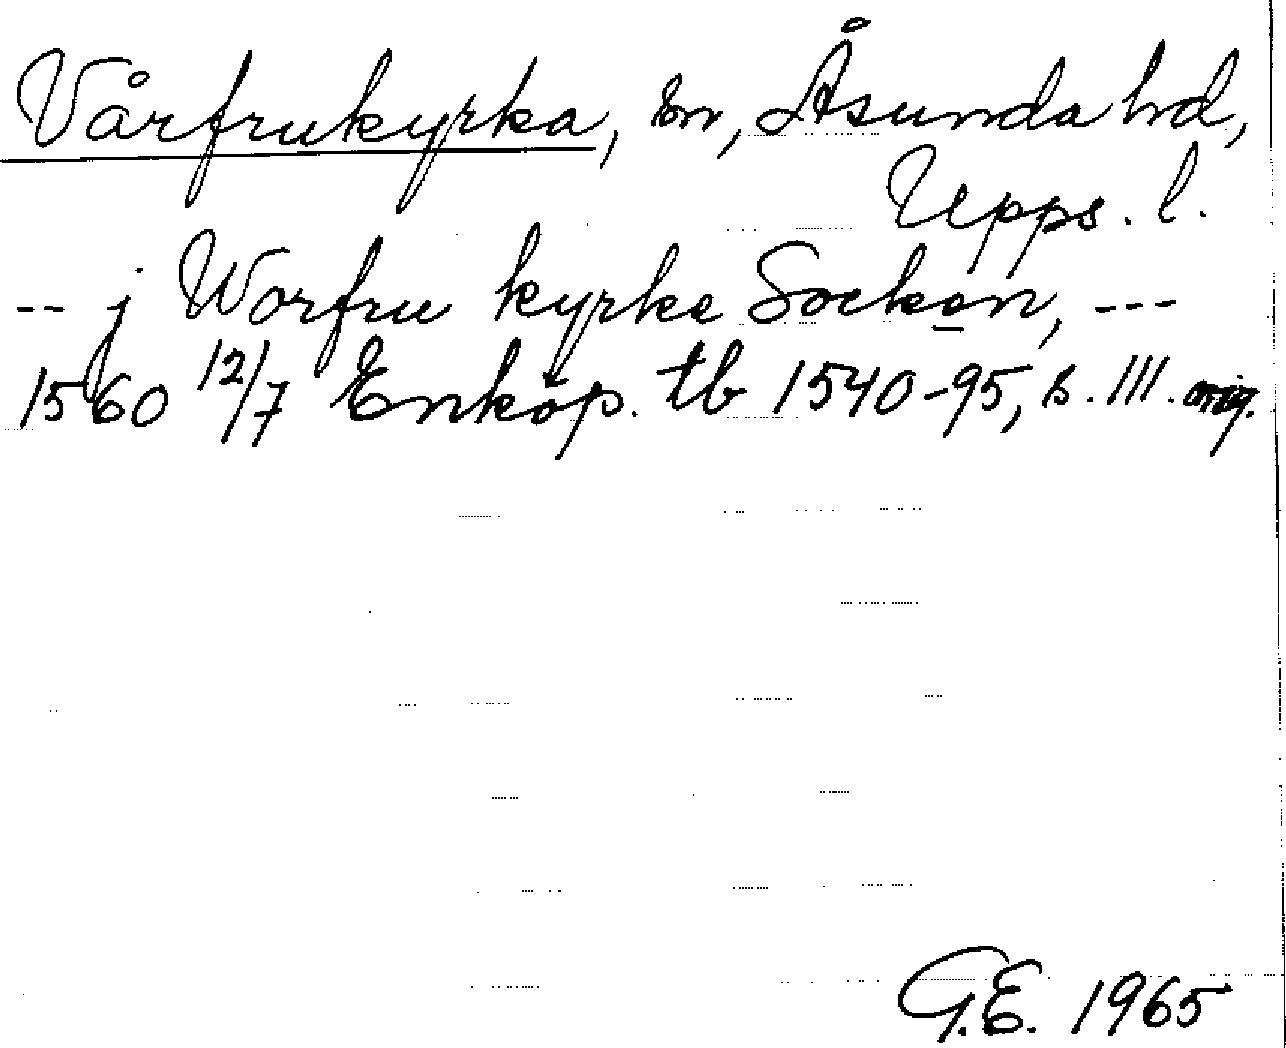 Vårfrukyrka, sn, Åsunda hd,
Upps. l.
-- j Worfru kyrke Socken, ---
1560 12/7 Enköp. tb 1540-95, s. 111. orig.
G.E. 1965